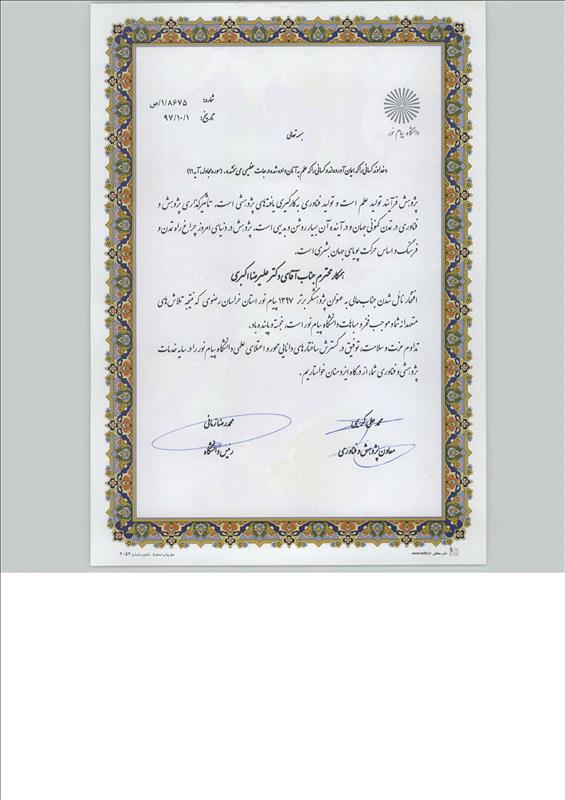 دانشگاه پیام نور
شماره: ۱/۸۶۷۵/ص
تاریخ: ۹۷/۱۰/۱
بسمه تعالی
«خداوند کسانی را که ایمان آورده‌اند و کسانی را که علم به آنان داده شده درجات عظیمی می‌بخشد». (سوره مجادله آیه ۱۱)
پژوهش فرآیند تولید علم است و تولید فناوری به کارگیری یافته‌های پژوهشی است. تأثیرگذاری پژوهش و
فناوری در تمدن کنونی جهان و در آینده آن بسیار روشن و بدیهی است. پژوهش در دنیای امروز چراغ راه تمدن و
فرهنگ و اساس حرکت پویای جهان بشری است.
همکار محترم جناب آقای دکتر علیرضا اکبری
افتخار نائل شدن جناب‌عالی به عنوان پژوهشگر برتر ۱۳۹۷ پیام نور استان خراسان رضوی که نتیجه تلاش‌های
متعهدانه شما و موجب فخر و مباهات دانشگاه پیام نور است، خجسته و پاینده باد.
تداوم عزت و سلامت، توفیق در گسترش ساختارهای دانایی محور و اعتلای علمی دانشگاه پیام نور را در سایه خدمات
پژوهشی و فناوری شما، از درگاه ایزد منان خواستاریم.
محمد علی کریمی
معاون پژوهش و فناوری
محمدرضا زمانی
رئیس دانشگاه
www.hafez.ir
حق چاپ محفوظ
۲۰۵۲